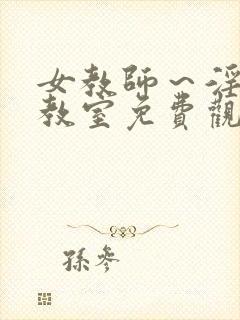 女教師～淫
教室免費觀
孫參